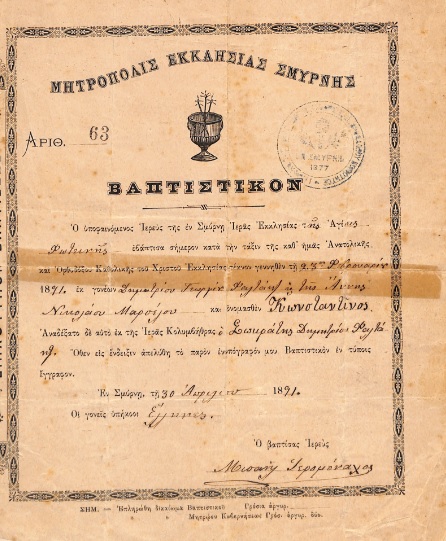 ΜΗΤΡΟΠΟΛΙΣ ΕΚΚΛΗΣΙΑΣ ΣΜΥΡΝΗΣ
ΑΡΙΘ. 63
ΣΜΥΡΝΗ
1877
ΒΑΠΤΙΣΤΙΚΟΝ
Ὁ ὑποφαινόμενος Ἱερεὺς τῆς ἐν Σμύρνῃ Ἱερᾶς Ἐκκλησίας τῆς Ἁγίας
Φωτεινῆς ἐβάπτισα σήμερον κατὰ τὴν τάξιν τῆς καθ' ἡμᾶς Ἀνατολικῆς
καὶ Ὀρθοδόξου Καθολικῆς τοῦ Χριστοῦ Ἐκκλησίας τέκνον γεννηθὲν τῇ 23 Φεβρουαρίου
1891. ἐκ γονέων Δημητρίου Γεωργίου καὶ τῆς Ἄννης
Νικολάου καὶ ὀνομασθὲν Κωνσταντῖνος.
Ἀνεδέξατο δὲ αὐτὸ ἐκ τῆς Ἱερᾶς Κολυμβήθρας ὁ Σωκράτης Δημητρίου
Ὅθεν εἰς ἔνδειξιν ἀπελύθη τὸ παρὸν ἐνυπόγραφόν μου Βαπτιστικὸν ἐν τύποις
ἔγγραφον.
Ἐν Σμύρνῃ, τῇ 30 Ἀπριλίου 1891.
Οἱ γονεῖς ὑπήκοοι Ἕλληνες.
Ὁ βαπτίσας Ἱερεὺς
Μισαὴλ Ἱερομόναχος
ΣΗΜ. — Ἐπληρώθη δικαίωμα Βαπτιστικοῦ Γρόσια ἀργυρ.
» » Μητρῴου Κυβερνήσεως Γρόσ. ἀργυρ. δύο.